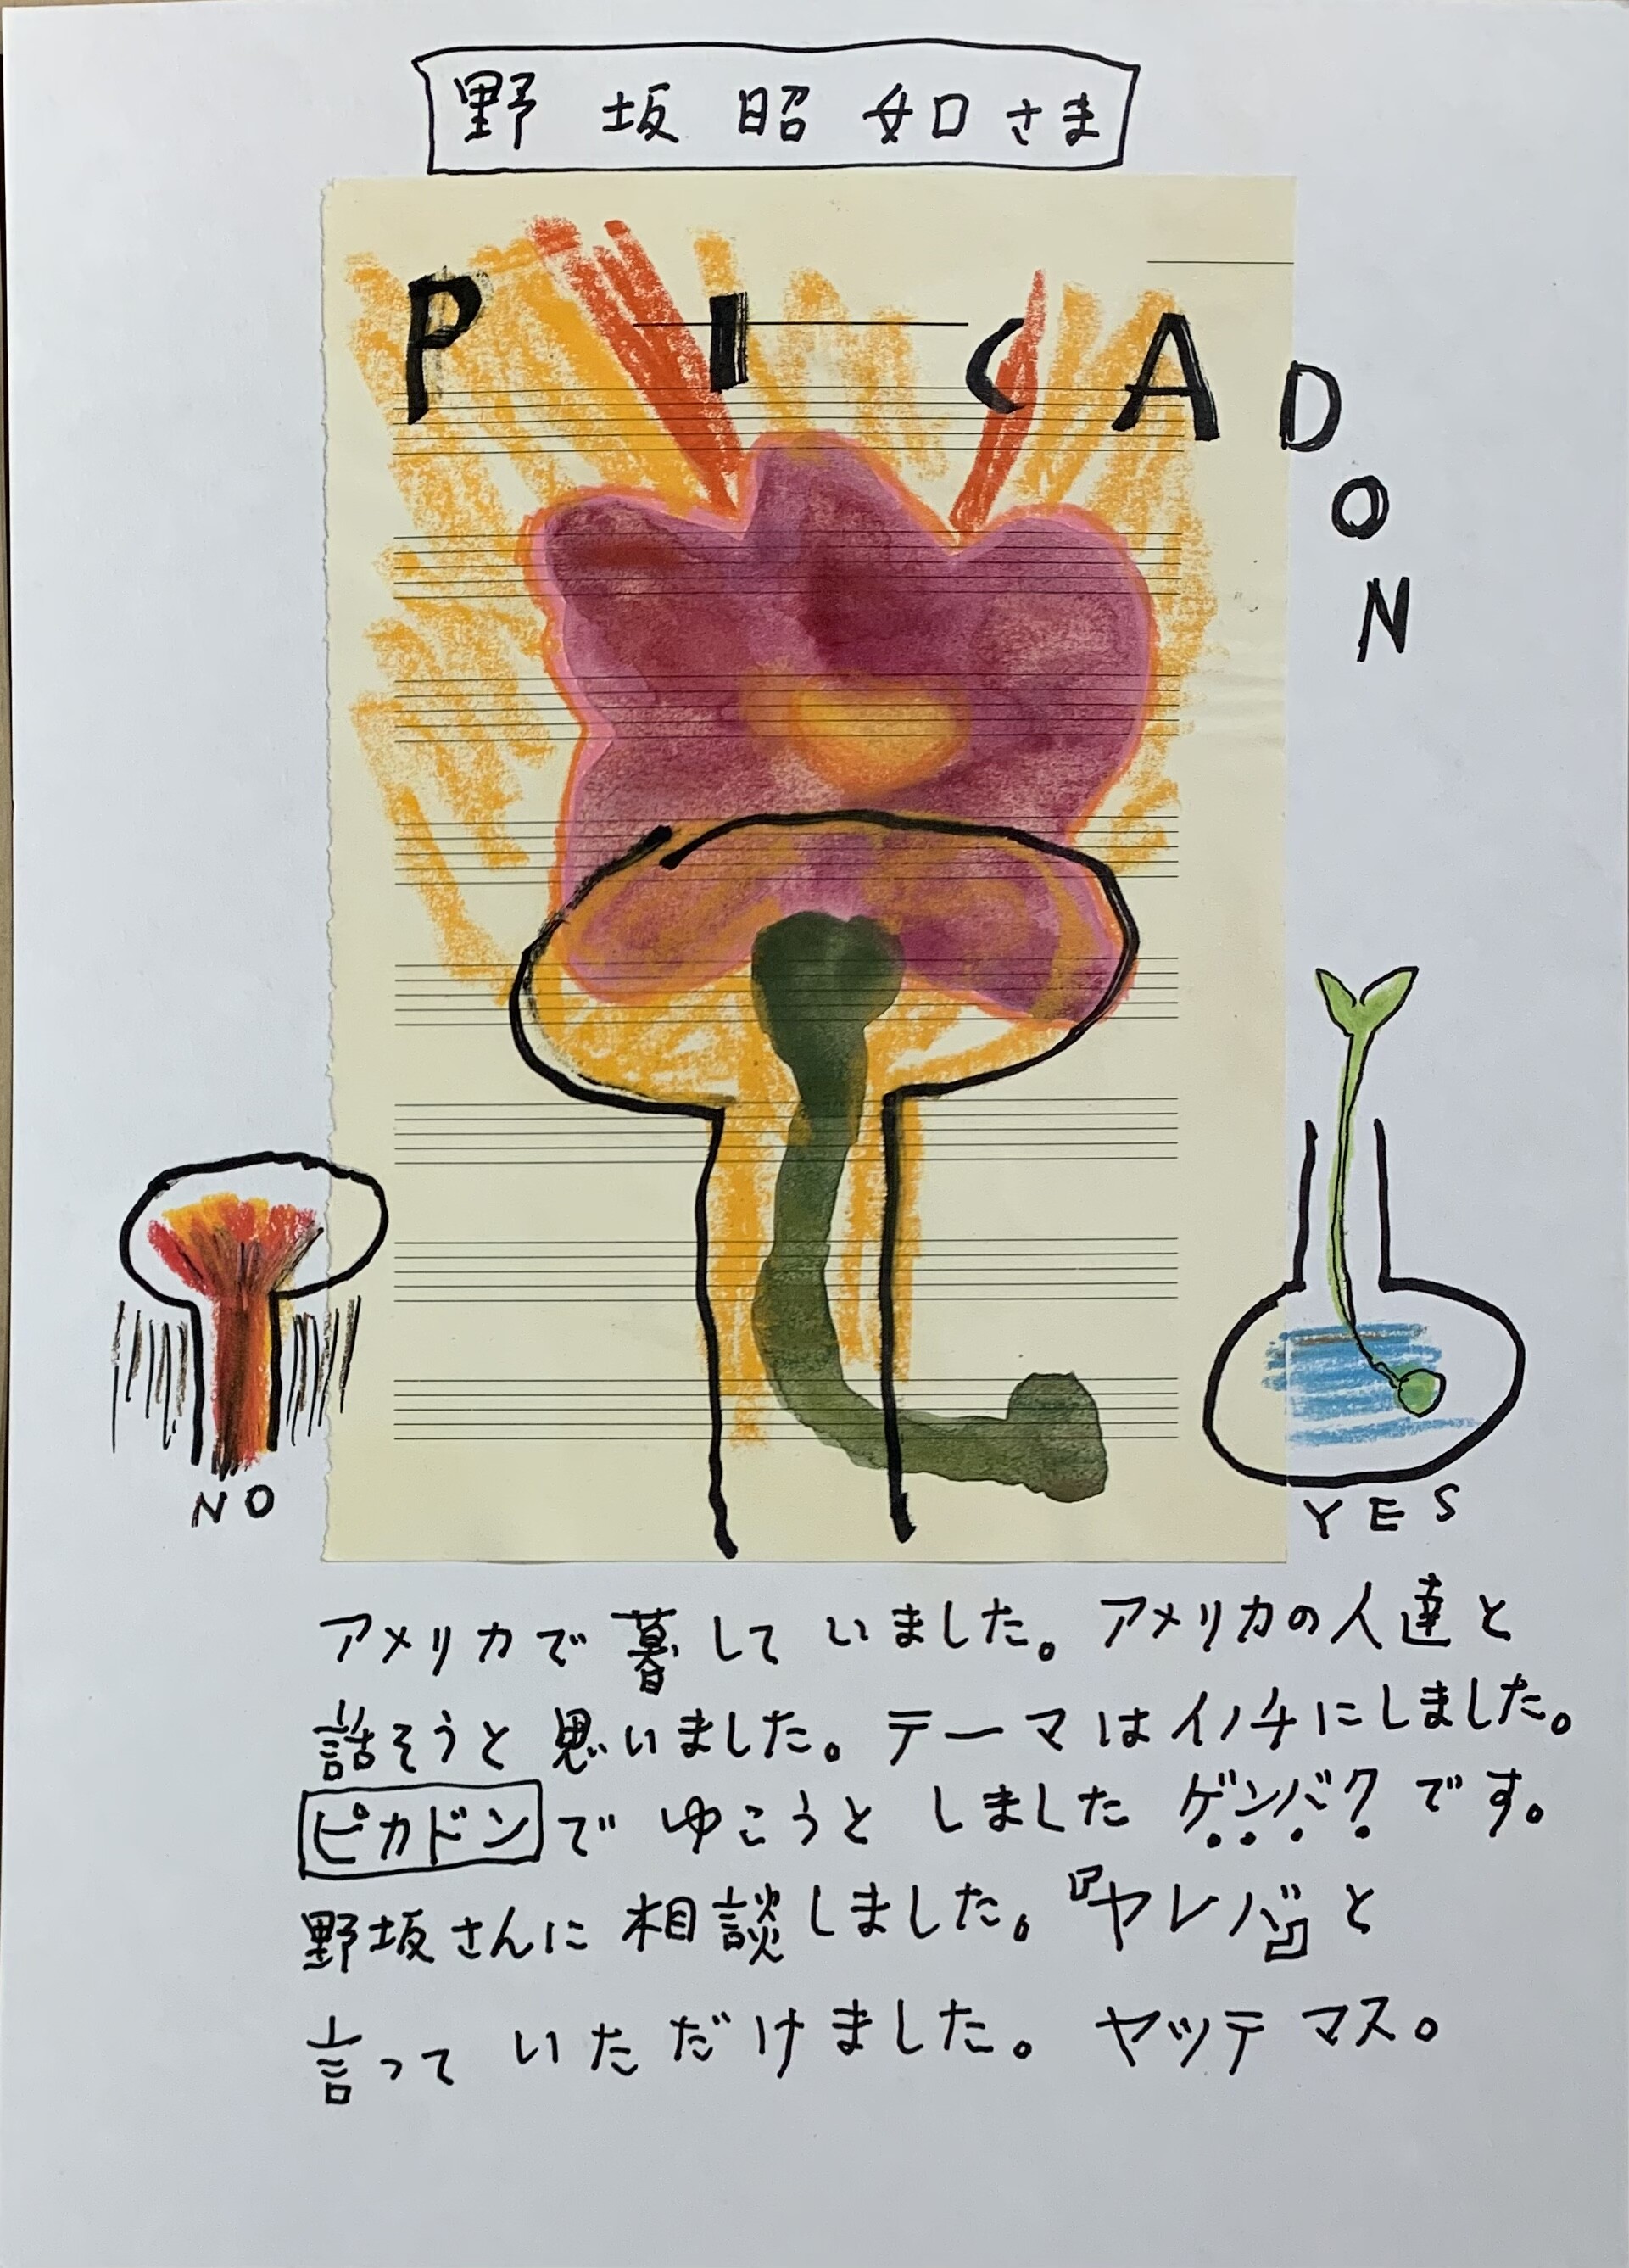 野坂昭如さま
PICADON
NO
YES
アメリカで暮していました。アメリカの人達と
話そうと思いました。テーマはイノチにしました。
ピカドンでゆこうとしましたゲンバクです。
野坂さんに相談しました。『ヤレバ』と
言っていただけました。ヤッテマス。